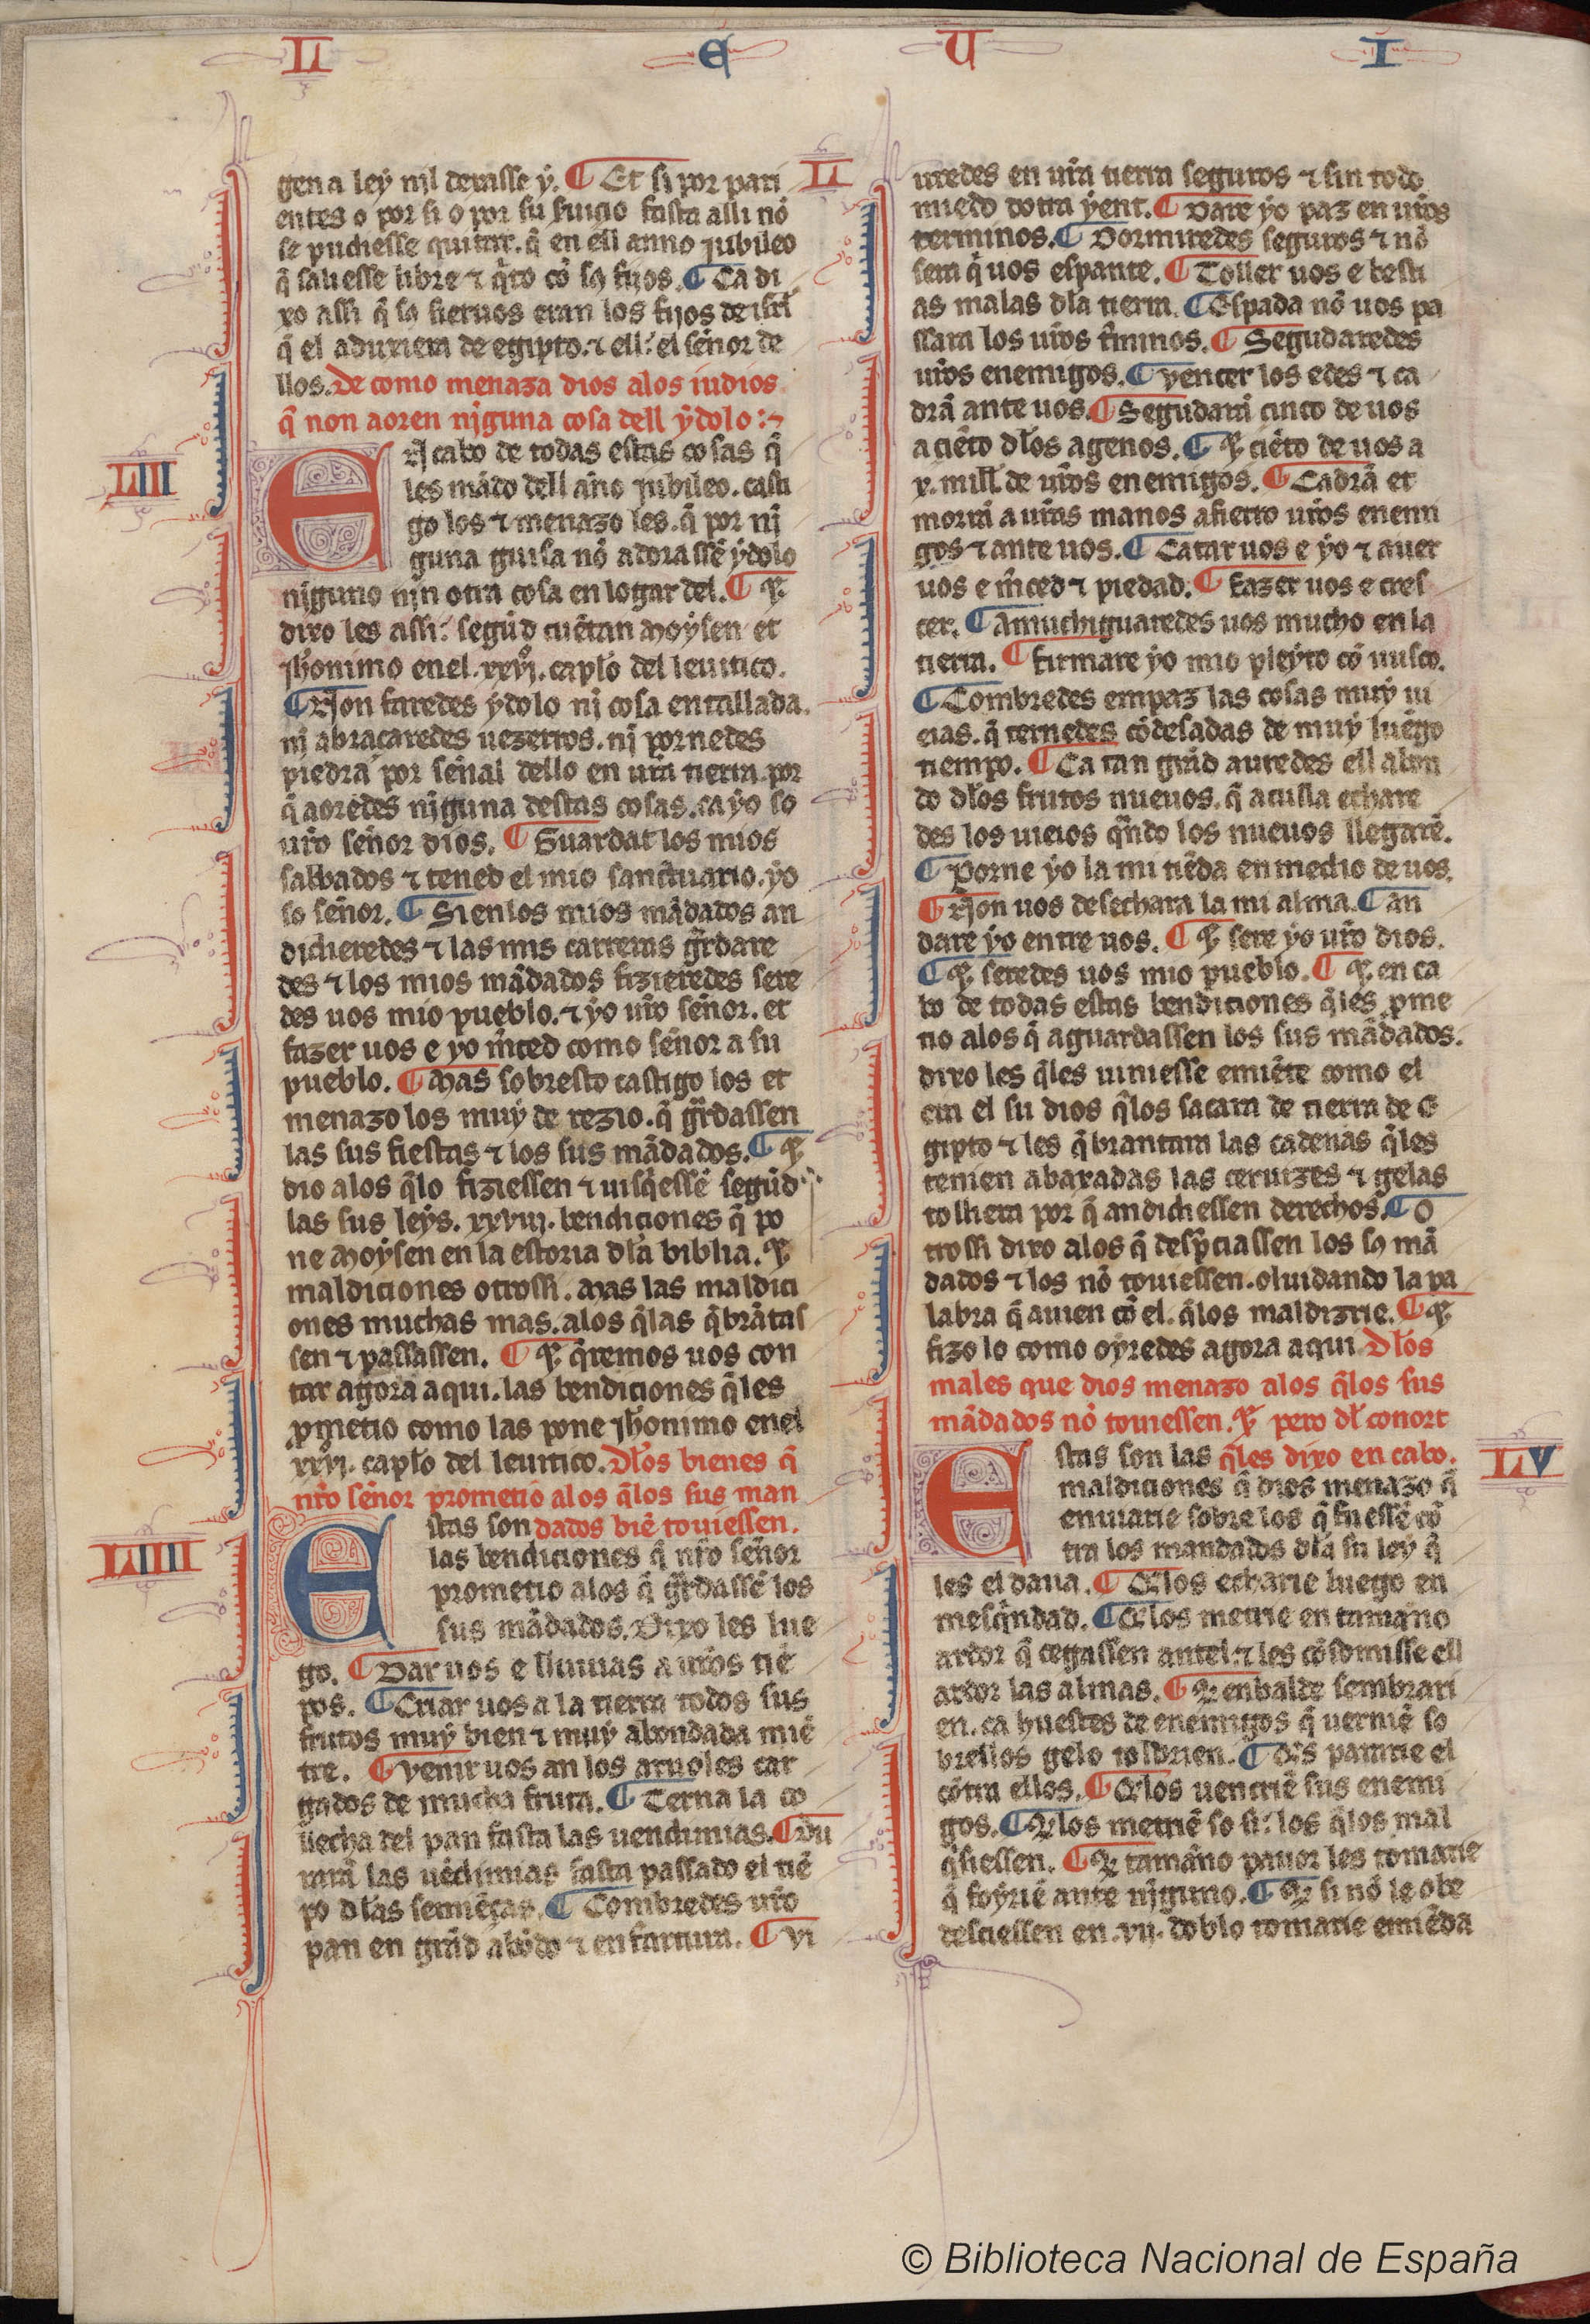 L E U I
gen a ley nil deuisse y. ¶ Et si por pari
entes o por si o por su seruicio fasta alli nõ
se pudiesse quitar. q̃ en ell anno jubileo
q̃ saliesse libre ⁊ q̃to cõ sꝰ fijos. ¶ Ca di
xo assi q̃ sꝰ sieruos eran los fijos de isrł
q̃ el aduxiera de egipto. ⁊ ell: el señor de
llos. De como menaza dios alos iudios
q̃ non aoren nj̃guna cosa dell ydolo :⁊
LIII
En cabo de todas estas cosas q̃
les mãdo dell año jubileo. casti
go los ⁊ menazo les. q̃ por nj̃
guna guisa nõ adorassẽ ydolo
nj̃guno nin otra cosa en logar del. ¶ ⁊
dixo les assi: segũd cuẽtan moysen et
jh̃onimo en el .xxvj. capło del leuitico.
¶ Non faredes ydolo nj̃ cosa entallada.
nj̃ abracaredes uezerros. nj̃ pornedes
piedra por señal dello en ur̃a tierra. por
q̃ aoredes nj̃guna destas cosas. ca yo so
ur̃o señor dios. ¶ Guardat los mios
sabbados ⁊ tened el mio sanctuario. yo
so señor. ¶ Si en los mios mãdados an
didieredes ⁊ las mis carreras gr̃dare
des ⁊ los mios mãdados fizieredes sere
des uos mio pueblo. ⁊ yo ur̃o señor. et
fazer uos e yo m̃ced como señor a su
pueblo. ¶ Mas sobresto castigo los et
menazo los muy de rezio. q̃ gr̃dassen
las sus fiestas ⁊ los sus mãdados. ¶ ⁊
dio alos q̃lo fiziessen ⁊ uisq̃essẽ segũd
las sus leys. xxviij. bendiciones q̃ po
ne moysen en la estoria dła biblia. ⁊
maldiciones otrossi. mas las maldici
ones muchas mas. alos q̃las q̃brãtas
sen ⁊ passassen. ¶ ⁊ q̃remos uos con
tar agora aqui. las bendiciones q̃les
ꝓmetio como las pone jh̃onimo en el
xxvj. capło del leuitico. Dłos bienes q̃
nr̃o señor prometio alos q̃los sus man
dados biẽ touiessen.
LIIII
Estas son
las bendiciones q̃ nr̃o señor
prometio alos q̃ gr̃dassẽ los
sus mãdados. Dixo les lue
go. ¶ Dar uos e lluuias a ur̃os tiẽ
pos. ¶ Criar uos a la tierra todos sus
frutos muy bien ⁊ muy abondada miẽ
tre. ¶ Venir uos an los aruoles car
gados de mucha fruta. ¶ Terna la co
llecha del pan fasta las uendimias. ¶ Du
rarã las uẽdimias fasta passado el tiẽ
po dłas semiẽças. ¶ Combredes ur̃o
pan en grãd abõdo ⁊ en fartura. ¶ Vi
uredes en ur̃a tierra seguros ⁊ sin todo
miedo dotra yent. ¶ Dare yo paz en ur̃os
terminos. ¶ Dormiredes seguros ⁊ nõ
sera q̃ uos espante. ¶ Toller uos e besti
as malas dła tierra. ¶ Espada nõ uos pa
ssara los ur̃os t̃minos. ¶ Segudaredes
ur̃os enemigos. ¶ Vencer los edes ⁊ ca
drã ante uos. ¶ Segudarã cinco de uos
a ciẽto dłos agenos. ¶ ⁊ ciẽto de uos a
x. mill. de ur̃os enemigos. ¶ Cadrã et
morrã a ur̃as manos a fierro ur̃os enemi
gos ⁊ ante uos. ¶ Catar uos e yo ⁊ auer
uos e m̃ced ⁊ piedad. ¶ Fazer uos e cres
cer. ¶ Amuchiguaredes uos mucho en la
tierra. ¶ Firmare yo mio pleyto cõ uusco.
¶ Combredes em paz las cosas muy ui
eias. q̃ ternedes cõdesadas de muy luẽgo
tiempo. ¶ Ca tan grãd auredes ell abon
do dłos frutos nueuos. q̃ acusla echare
des los uieios q̃ndo los nueuos llegarẽ.
¶ Porne yo la mi tiẽda en medio de uos.
¶ Non uos desechara la mi alma. ¶ An
dare yo entre uos. ¶ ⁊ sere yo ur̃o dios.
¶ ⁊ seredes uos mio pueblo. ¶ ⁊ en ca
bo de todas estas bendiciones q̃les ꝓme
tio alos q̃ aguardassen los sus mãdados.
dixo les q̃les uiniesse emiẽte como el
era el su dios q̃los sacara de tierra de E
gipto ⁊ les q̃brantara las cadenas q̃les
tenien abaxadas las ceruizes ⁊ gelas
tolliera por q̃ andidiessen derechos. ¶ O
trossi dixo alos q̃ desp̃ciassen los sꝰ mã
dados ⁊ los nõ touiessen. oluidando la pa
labra q̃ auien cõ el. q̃los maldizrie. ¶ ⁊
fizo lo como oyredes agora aqui. Dłos
males que dios menazo alos q̃los sus
mãdados nõ touiessen. ⁊ pero dł conort
q̃les dixo en cabo.
LV
Estas son las
maldiciones q̃ dios menazo q̃
enuiarie sobre los q̃ fuessẽ cõ
tra los mandados dła su ley q̃
les el daua. ¶ Q̃los echarie luego en
mesq̃ndad. ¶ Q̃los metrie en tamaño
ardor q̃ cegassen antel: ⁊ les cõsomisse ell
ardor las almas. ¶ ⁊ en balde sembrari
en. ca huestes de enemigos q̃ uerniẽ so
brellos gelo toldrien. ¶ Q̃s pararie el
cõtra ellos. ¶ Q̃los uencriẽ sus enemi
gos. ¶ ⁊ los metriẽ so si: los q̃los mal
q̃siessen. ¶ ⁊ tamaño pauor les tomarie
q̃ foyriẽ ante nj̃guno. ¶ ⁊ si nõ le obe
desciessen en .vij. doblo tomarie emiẽda
© Biblioteca Nacional de España